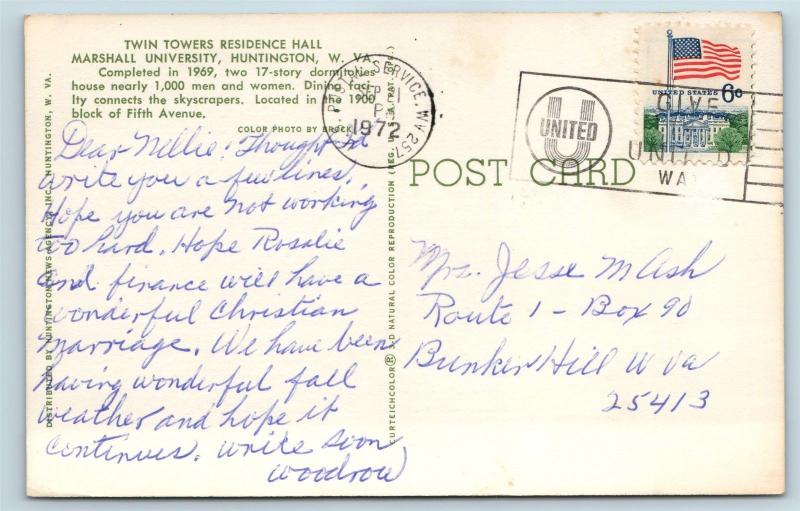 TWIN TOWERS RESIDENCE HALL
MARSHALL UNIVERSITY, HUNTINGTON, W. VA.
Completed in 1969, two 17-story dormitories
house nearly 1,000 men and women. Dining facil-
ity connects the skyscrapers. Located in the 1900
block of Fifth Avenue.
COLOR PHOTO BY BROCK
Dear Nellie: Thought I'd
write you a few lines,
Hope you are not working
too hard. Hope Rosalie
and finance will have a
wonderful Christian
Marriage. We have been
having wonderful fall
weather and hope it
continues. write soon
Woodrow
DISTRIBUTED BY HUNTINGTON NEWS AGENCY, INC., HUNTINGTON, W. VA.
CURTEICHCOLOR® 3-D NATURAL COLOR REPRODUCTION (REG. U.S.A. PAT. OFF.)
POST CARD
SERVICE, WV 257
SEP 1
P
1972
U
UNITED
GIVE
UNITED
WAY
UNITED STATES 6c
Mrs. Jesse M Ash
Route 1 - Box 90
Bunker Hill W Va
25413